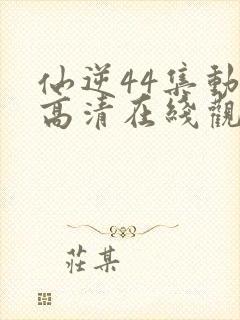 仙逆44集動
高清在綫觀
莊某